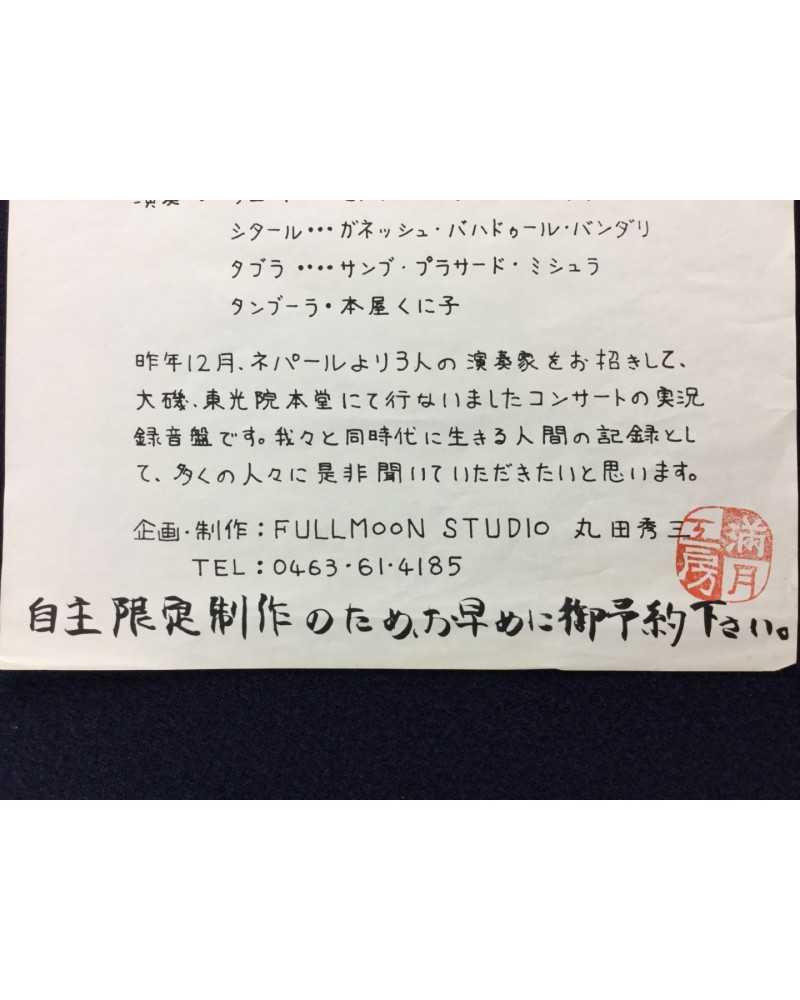 シタール・・・ガネッシュ・バハドゥール・バンダリ
タブラ ・・・・サンブ・プラサード・ミシュラ
タンブーラ・本屋くに子
昨年12月、ネパールより3人の演奏家をお招きして、
大磯、東光院本堂にて行ないましたコンサートの実況
録音盤です。我々と同時代に生きる人間の記録とし
て、多くの人々に是非聞いていただきたいと思います。
企画・制作：FULLMOON STUDIO 丸田秀三
TEL：0463・61・4185
満月工房
自主限定制作のため、お早めに御予約下さい。